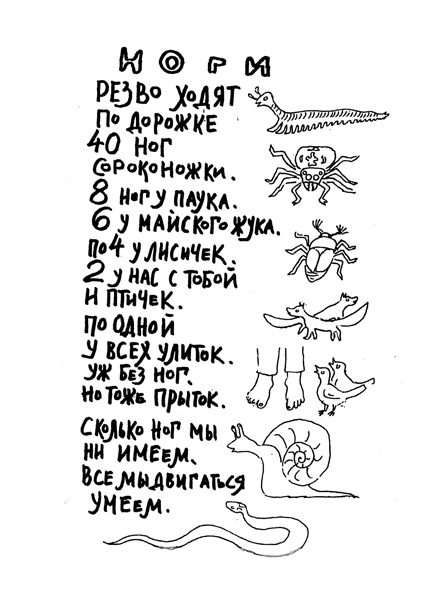 НОГИ
РЕЗВО ХОДЯТ
ПО ДОРОЖКЕ
40 НОГ
СОРОКОНОЖКИ.
8 НОГ У ПАУКА.
6 У МАЙСКОГО ЖУКА.
ПО 4 У ЛИСИЧЕК.
2 У НАС С ТОБОЙ
И ПТИЧЕК.
ПО ОДНОЙ
У ВСЕХ УЛИТОК.
УЖ БЕЗ НОГ.
НО ТОЖЕ ПРЫТОК.
СКОЛЬКО НОГ МЫ
НИ ИМЕЕМ,
ВСЕ МЫ ДВИГАТЬСЯ
УМЕЕМ.